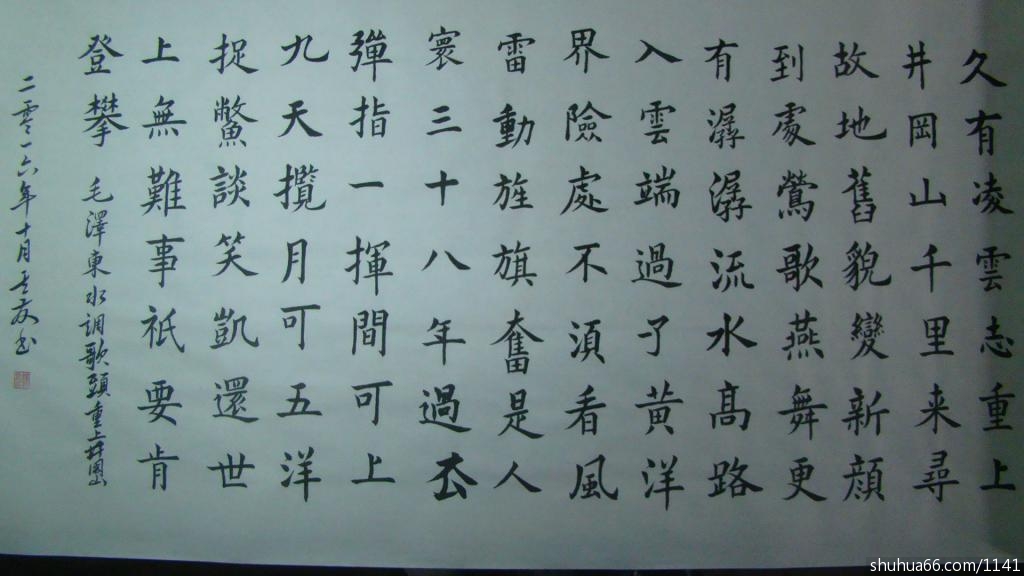 久有凌雲志重上
井岡山千里来尋
故地舊貌變新顔
到處鶯歌燕舞更
有潺潺流水髙路
入雲端過了黄洋
界險處不須看風
雷動旌旗奮是人
寰三十八年過去
彈指一揮間可上
九天攬月可五洋
捉鱉談笑凱還世
上無難事祇要肯
登攀 毛澤東水调歌頭重上井岡
二零一六年十月
shuhua66.com/1141